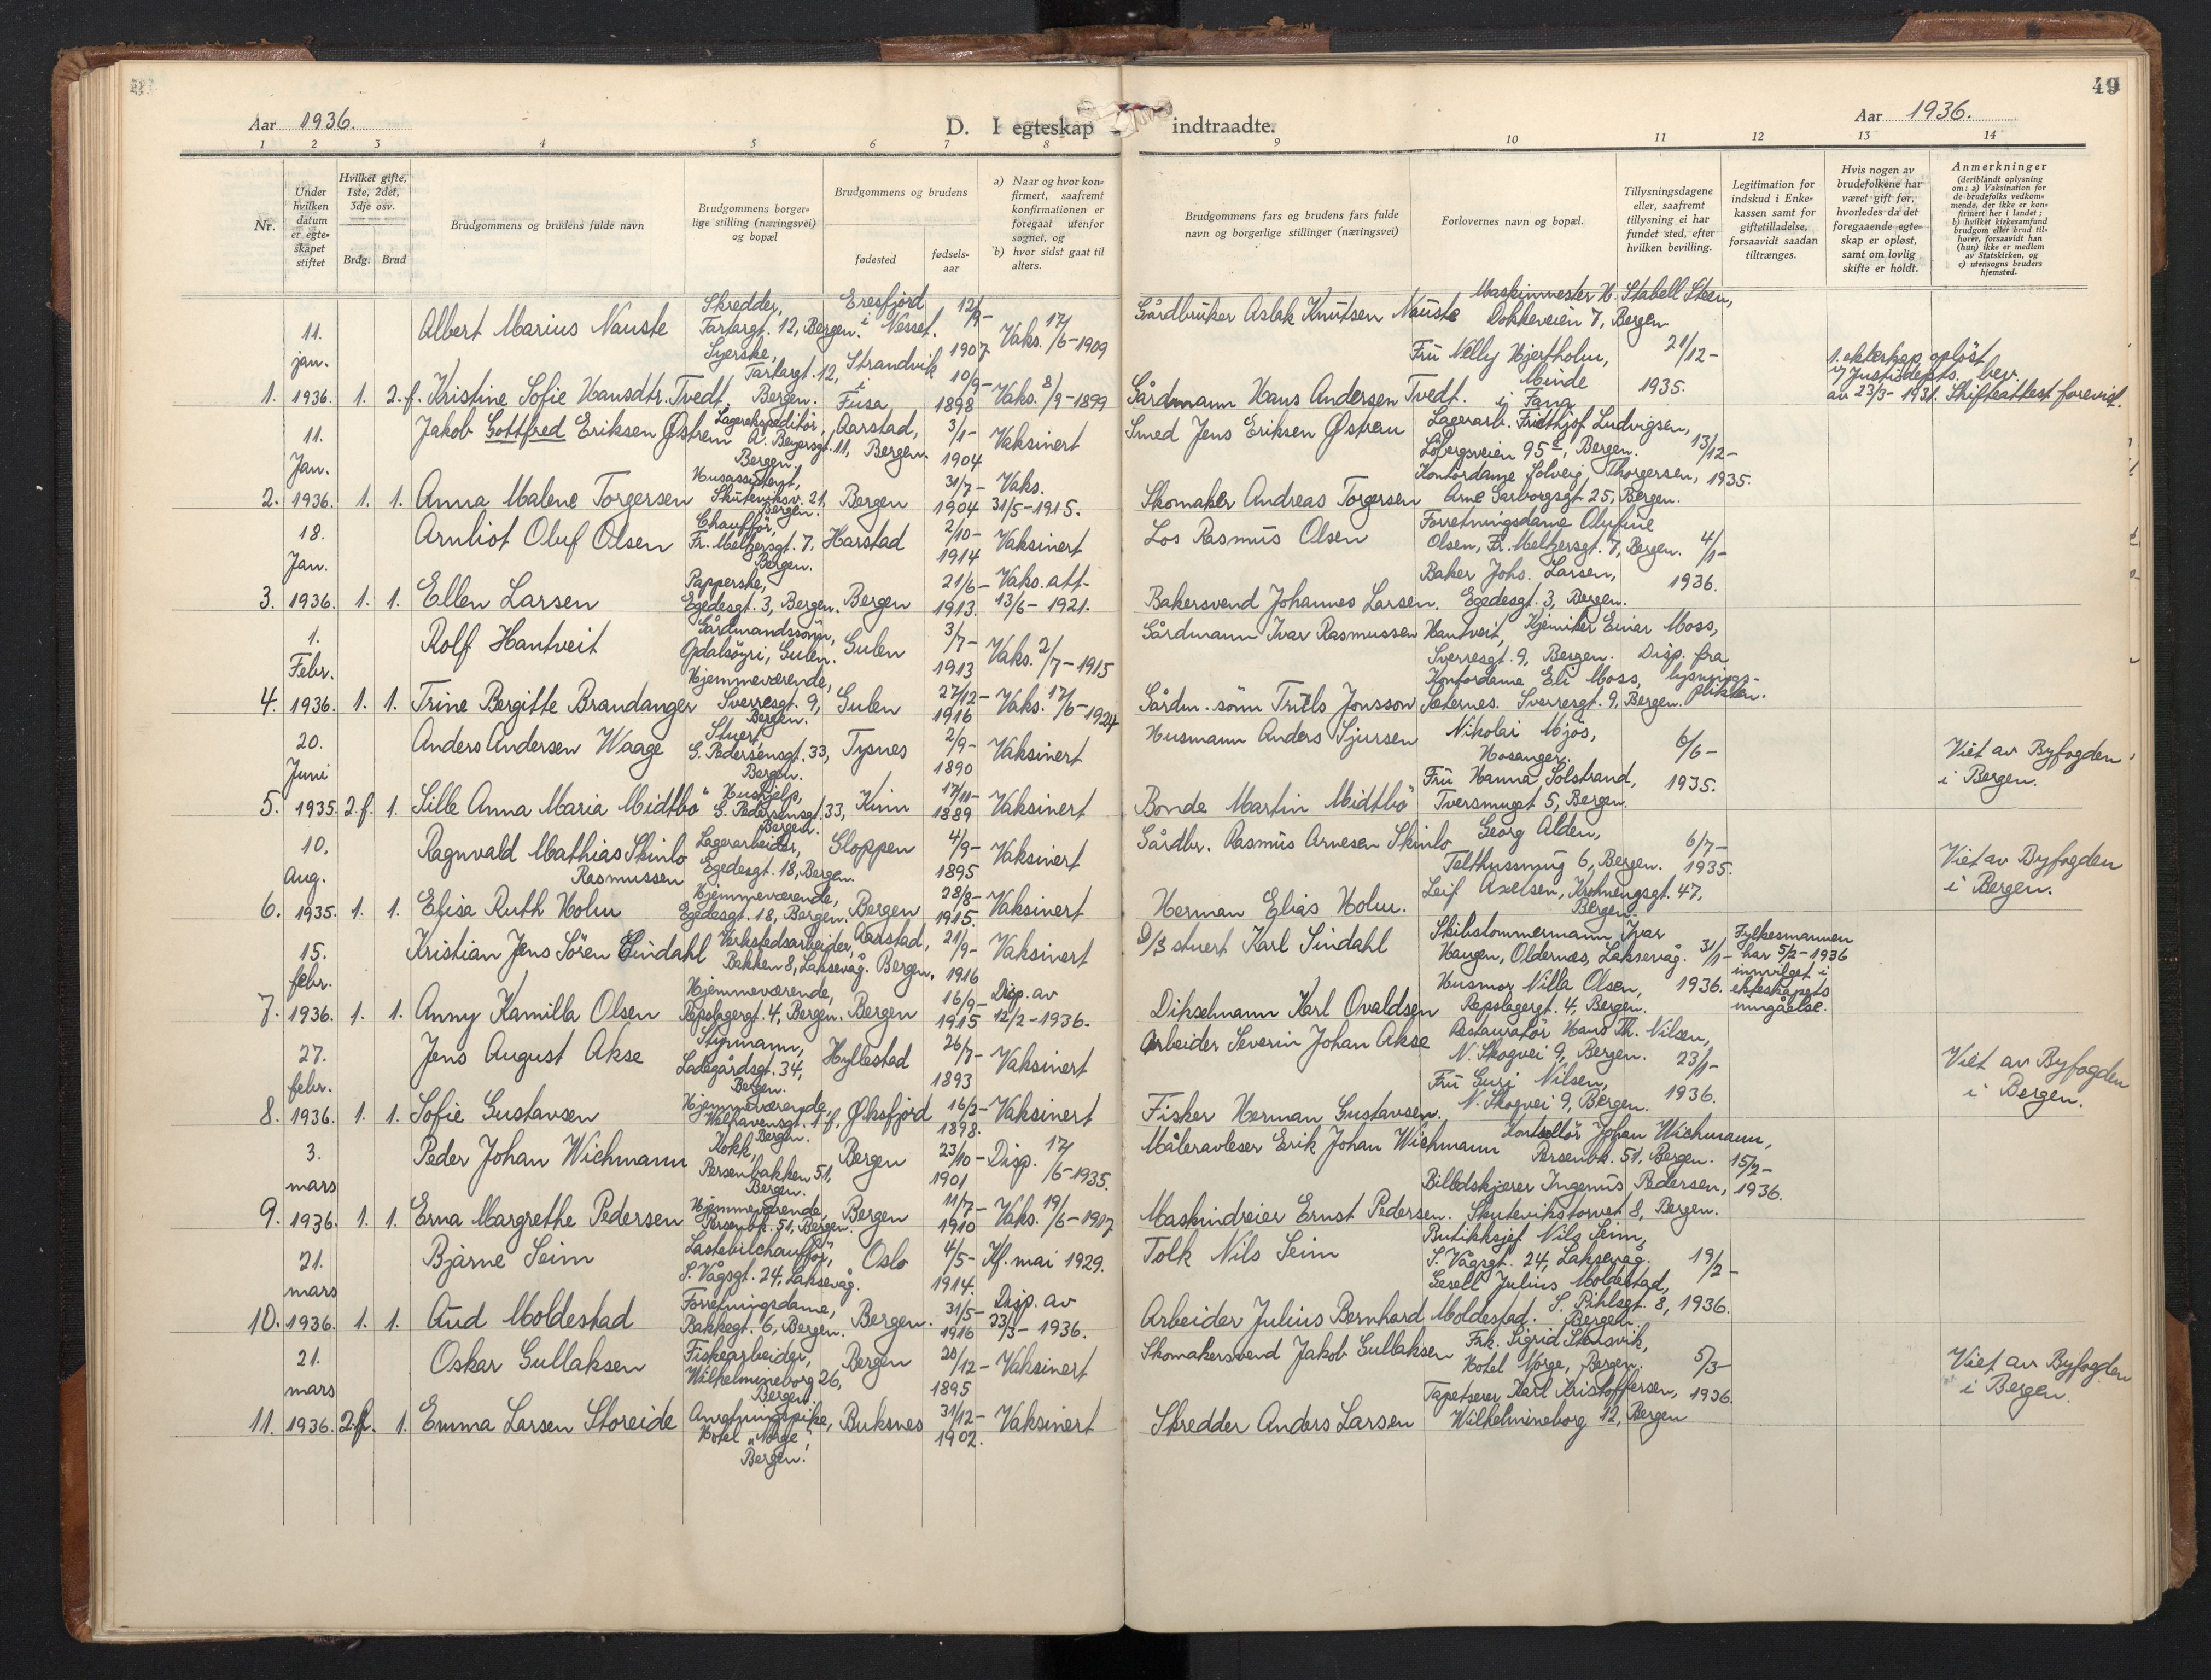 Aar 1936.
D. I egteskap indtraadte.
Aar 1936.
49
1 2 3 4 5 6 7 8 9 10 11 12 13 14
Nr.
Under hvilken datum er egteskapet stiftet
Hvilket gifte, 1ste, 2det, 3dje osv.
Brdg. Brud
Brudgommens og brudens fulde navn
Brudgommens borgerlige stilling (næringsvei) og bopæl
Brudgommens og brudens
fødested
fødselsaar
a) Naar og hvor konfirmert, saafremt konfirmationen er foregaat utenfor sognet, og
b) hvor sidst gaat til alters.
Brudgommens fars og brudens fars fulde navn og borgerlige stillinger (næringsvei)
Forlovernes navn og bopæl.
Tillysningsdagene eller, saafremt tillysning ei har fundet sted, efter hvilken bevilling.
Legitimation for indskud i Enkekassen samt for giftetilladelse, forsaavidt saadan tiltrænges.
Hvis nogen av brudefolkene har været gift før, hvorledes da det foregaaende egteskap er opløst, samt om lovlig skifte er holdt.
Anmerkninger
(deriblandt oplysning om: a) Vaksination for de brudefolks vedkommende, der ikke er konfirmert her i landet; b) hvilket kirkesamfund brudgom eller brud tilhører, forsaavidt han (hun) ikke er medlem av Statskirken, og c) utensogns bruders hjemsted.
1. 11. jan. 1936. 1. 2.f.
Albert Marius Nauste
Skredder, Tartargt. 12, Bergen.
Eresfjord i Nesset.
12/9- 1907
Vaks. 17/6-1909
Gårdbruker Aslak Knutsen Nauste
Maskinmester H. Stabell Steen, Dokkeveien 7, Bergen
21/12- 1935.
Kristine Sofie Hansdtr. Tvedt.
Syerske, Tartargt. 12, Bergen.
Strandvik i Fusa
10/9- 1898
Vaks. 8/9-1899
Gårdmann Hans Andersen Tvedt.
Fru Nelly Hjertholm, Minde i Fana
1. ekteskap opløst v/ Justisdepts. bev. av 23/3-1931. Skifteattest forevist.
2. 11. Jan. 1936. 1. 1.
Jakob Gottfred Eriksen Østrem
Lagerekspeditör, A. Beyersgt. 11, Bergen.
Aarstad, Bergen.
3/1- 1904
Vaksinert
Smed Jens Eriksen Østrem
Lagerarb. Fridthjof Ludvigsen, Löbergsveien 95 c, Bergen.
13/12- 1935.
Anna Malene Torgersen
Husassistent, Skuteviksv. 21, Bergen.
Bergen
31/7- 1904
Vaks. 31/5-1915.
Skomaker Andreas Torgersen
Kontordame Solveig Thorgersen, Arne Garborgsgt 25, Bergen.
3. 18. Jan. 1936. 1. 1.
Arnliot Oluf Olsen
Chaufför, Fr. Meltzersgt. 7, Bergen.
Harstad
2/10- 1914
Vaksinert
Los Rasmus Olsen
Forretningsdame Olufine Olsen, Fr. Meltzersgt. 7, Bergen.
4/1- 1936.
Ellen Larsen
Papperske, Egedesgt. 3, Bergen.
Bergen
21/6- 1913.
Vaks. att. 13/6-1921.
Bakersvend Johannes Larsen.
Baker Johs. Larsen, Egedesgt. 3, Bergen.
4. 1. Febr. 1936. 1. 1.
Rolf Hantveit
Gårdmandssönn, Opdalsöyri, Gulen.
Gulen
3/7- 1913
Vaks. 2/7-1915
Gårdmann Ivar Rasmussen Hantveit
Kjemiker Einar Moss, Sverresgt. 9, Bergen.
Disp. fra lysningsplikten.
Trine Bergitte Brandanger
Hjemmeværende, Sverresgt. 9, Bergen.
Gulen
27/12- 1916
Vaks. 17/6-1924
Gårdm. sönn Truls Jonsson Sæternes.
Kontordame Eli Moss, Sverresgt. 9, Bergen.
5. 20. Juni 1935. 2.f. 1.
Anders Andersen Waage
Stuert, G. Pedersensgt. 33, Bergen.
Tysnes
2/9- 1890
Vaksinert
Husmann Anders Sjursen
Nikolai Mjös, Hosanger.
6/6- 1935.
Viet av Byfogden i Bergen.
Sille Anna Maria Midtbö
Hushjelp, G. Pedersensgt. 33, Bergen.
Kinn
17/11- 1889
Vaksinert
Bonde Martin Midtbö
Fru Hanna Solstrand, Tversmuget 5, Bergen.
6. 10. Aug. 1935. 1. 1.
Ragnvald Mathias Skinlo Rasmussen
Lagerarbeider, Egedesgt. 18, Bergen.
Gloppen
4/9- 1895
Vaksinert
Gårdbr. Rasmus Arnesen Skinlo
Georg Alden, Telthussmug 6, Bergen.
6/7- 1935.
Viet av Byfogden i Bergen.
Elisa Ruth Holm
Hjemmeværende, Egedesgt. 18, Bergen.
Bergen
28/8- 1915.
Vaksinert
Herman Elias Holm.
Leif Axelsen, Krohnengsgt. 47, Bergen.
7. 15. febr. 1936. 1. 1.
Kristian Jens Sören Sindahl
Verkstedsarbeider, Bakken 8, Laksevåg.
Aarstad, Bergen.
21/9- 1916
Vaksinert
D/S stuert Karl Sindahl
Skibstommermann Ivar Haugen, Oldernes, Laksevåg.
31/1- 1936.
Fylkesmannen har 5/2-1936 innvilget i ekteskapets inngåelse.
Anny Kamilla Olsen
Hjemmeværende, Repslagergt. 4, Bergen.
Bergen
16/9- 1915
Disp. av 12/2-1936.
Dikselmann Karl Ovaldsen
Husmor Nilla Olsen, Repslagergt. 4, Bergen.
8. 27. febr. 1936. 1. 1.
Jens August Akse
Styrmann, Ladegårdsgt. 34, Bergen.
Hyllestad
26/7- 1893
Vaksinert
Arbeider Severin Johan Akse
Restauratör Hans Th. Nilsen, N. Skogvei 9, Bergen.
23/1- 1936.
Viet av Byfogden i Bergen.
Sofie Gustavsen
Hjemmeværende, Welhavensgt. 1 f, Bergen.
Øksfjord
16/2- 1898.
Vaksinert
Fisker Herman Gustavsen.
Fru Guri Nilsen, N. Skogvei 9, Bergen.
9. 3. mars 1936. 1. 1.
Peder Johan Wichmann
Kokk, Persenbakken 51, Bergen.
Bergen
23/10- 1901
Disp. 17/6-1935.
Måleravleser Erik Johan Wichmann
Kontrollör Johan Wichmann, Persenbk. 51, Bergen.
15/2- 1936.
Erna Margrethe Pedersen
Hjemmeværende, Persenbk. 51, Bergen.
Bergen
11/7- 1910
Vaks. 19/6-1917
Maskindreier Ernst Pedersen.
Billedskjærer Ingenus Pedersen, Skutevikstorvet 8, Bergen.
10. 21. mars 1936. 1. 1.
Bjarne Seim
Lastebilchaufför, S. Vågsgt. 24, Laksevåg.
Oslo
4/5- 1914.
Kf. mai 1929.
Tolk Nils Seim
Butikksjef Nils Seim, S. Vågsgt. 24, Laksevåg.
19/2- 1936.
Aud Moldestad
Forretningsdame, Bakkegt. 6, Bergen.
Bergen.
31/5- 1916
Disp. av 23/3-1936.
Arbeider Julius Bernhard Moldestad.
Gesell Julius Moldestad, S. Pihlsgt. 8, Bergen.
11. 21. mars 1936. 2.f. 1.
Oskar Gullaksen
Fiskearbeider, Wilhelmineborg 26, Bergen
Bergen
20/12- 1895
Vaksinert
Skomakersvend Jakob Gullaksen
Frk. Sigrid Stensvik, Hotel Norge, Bergen.
5/3- 1936.
Viet av Byfogden i Bergen.
Emma Larsen Storeide
Anretningspike, Hotel "Norge", Bergen.
Buksnes
31/12- 1902.
Vaksinert
Skredder Anders Larsen
Tapetserer Karl Kristoffersen, Wilhelmineborg 12, Bergen